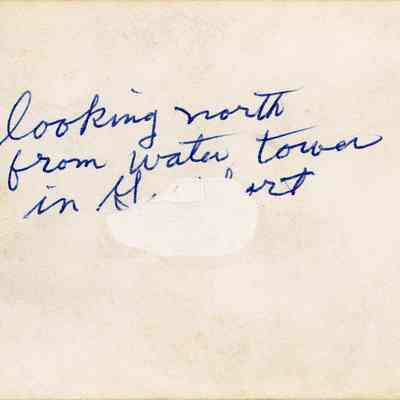 looking north
from water tower
in